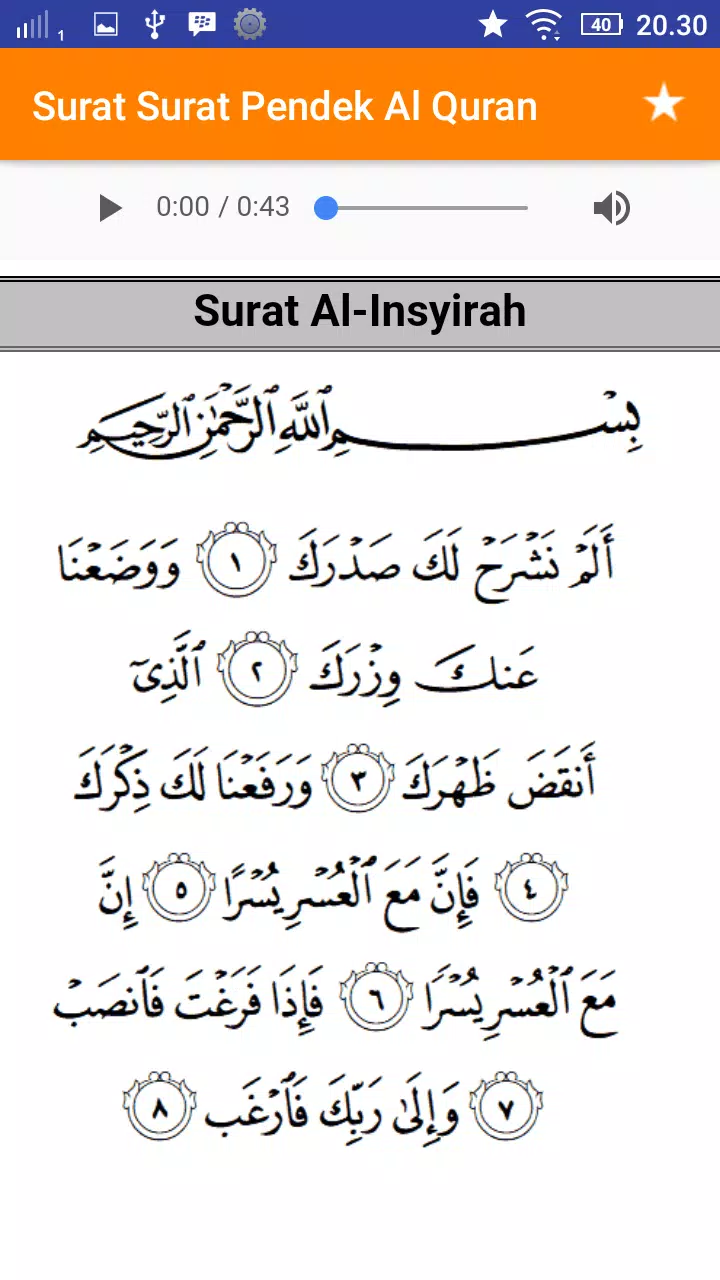 1 40 20.30
Surat Surat Pendek Al Quran
0:00 / 0:43
Surat Al-Insyirah
بِسْمِ ٱللَّهِ ٱلرَّحْمَٰنِ ٱلرَّحِيمِ
أَلَمْ نَشْرَحْ لَكَ صَدْرَكَ ١ وَوَضَعْنَا
عَنكَ وِزْرَكَ ٢ ٱلَّذِىٓ
أَنقَضَ ظَهْرَكَ ٣ وَرَفَعْنَا لَكَ ذِكْرَكَ
٤ فَإِنَّ مَعَ ٱلْعُسْرِ يُسْرًا ٥ إِنَّ
مَعَ ٱلْعُسْرِ يُسْرًا ٦ فَإِذَا فَرَغْتَ فَٱنصَبْ
٧ وَإِلَىٰ رَبِّكَ فَٱرْغَب ٨